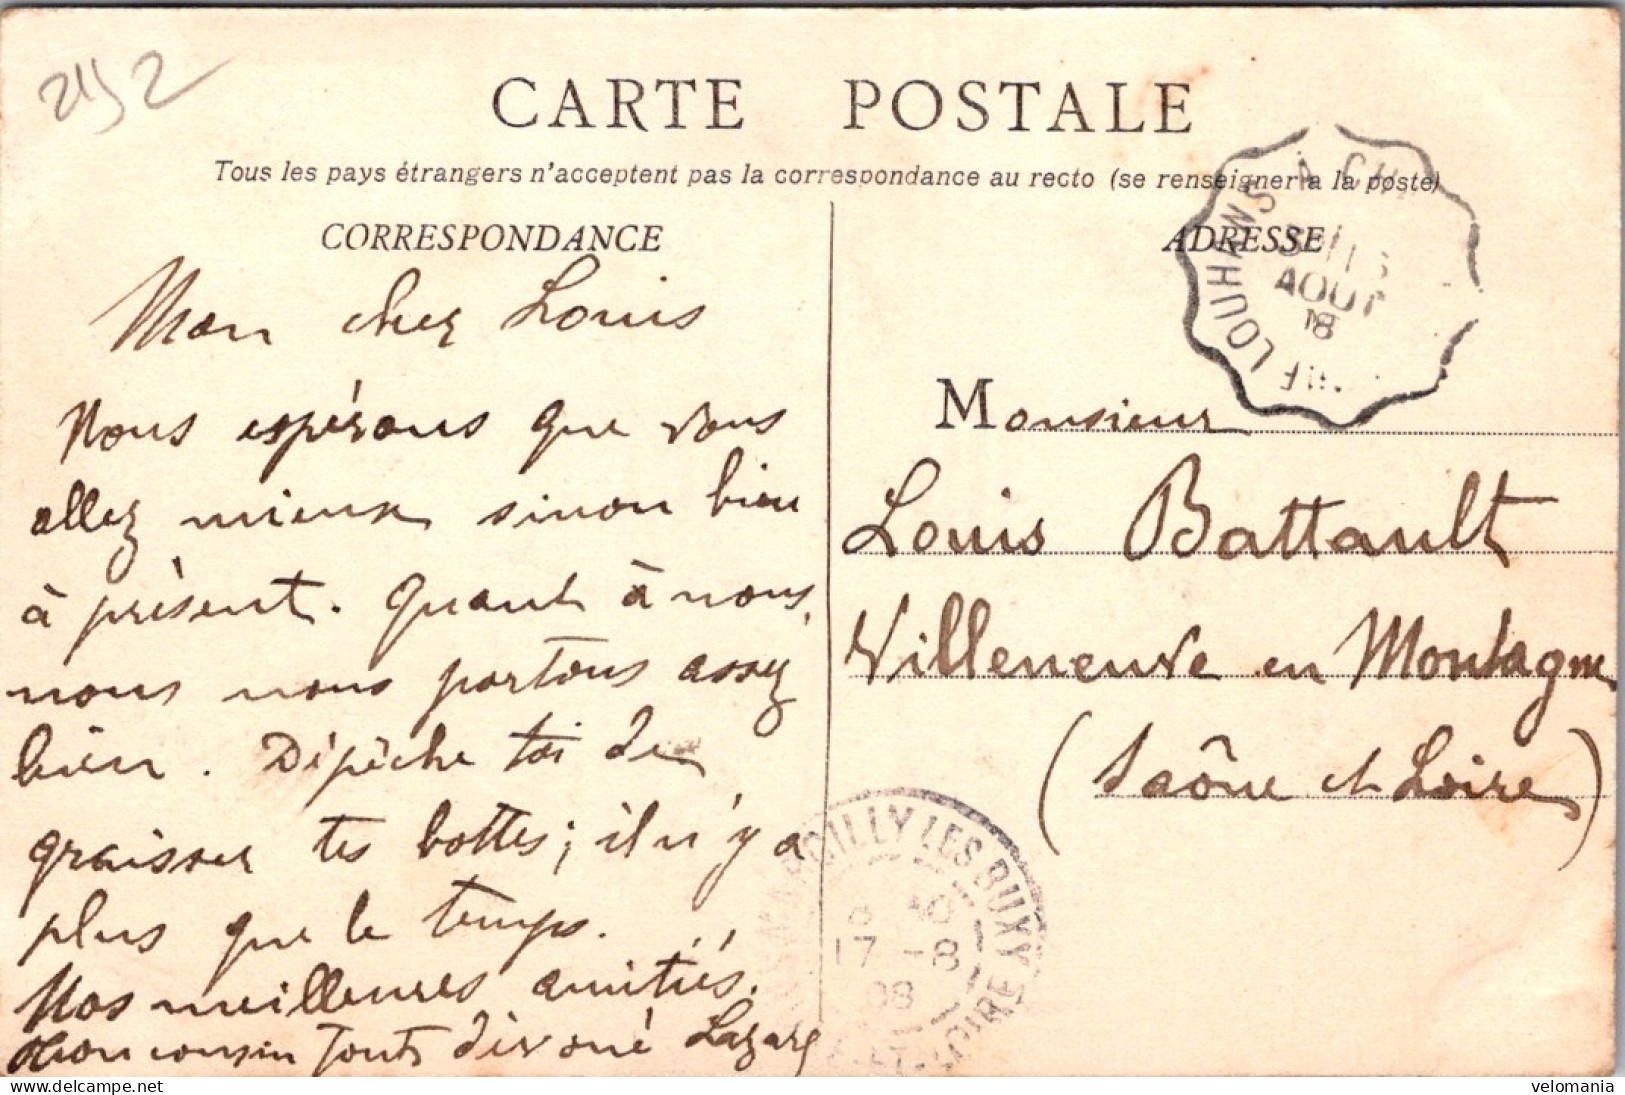 CARTE POSTALE
Tous les pays étrangers n'acceptent pas la correspondance au recto (se renseigner à la poste)
CORRESPONDANCE
Mon cher Louis
Nous espérons que vous
allez mieux sinon bien
à présent. Quant à nous,
nous nous portons assez
bien. Dépêche toi de
graisser tes bottes; il n'y a
plus que le temps.
Nos meilleures amitiés.
Mon cousin tout dévoué Lazare
ADRESSE
Monsieur
Louis Battault
Villeneuve en Montagne
(Saône et Loire)
LOUHANS À CH
AOUT
JULLY LES BUXY
17 -8
08
LOIRE
www.delcampe.net
velomania